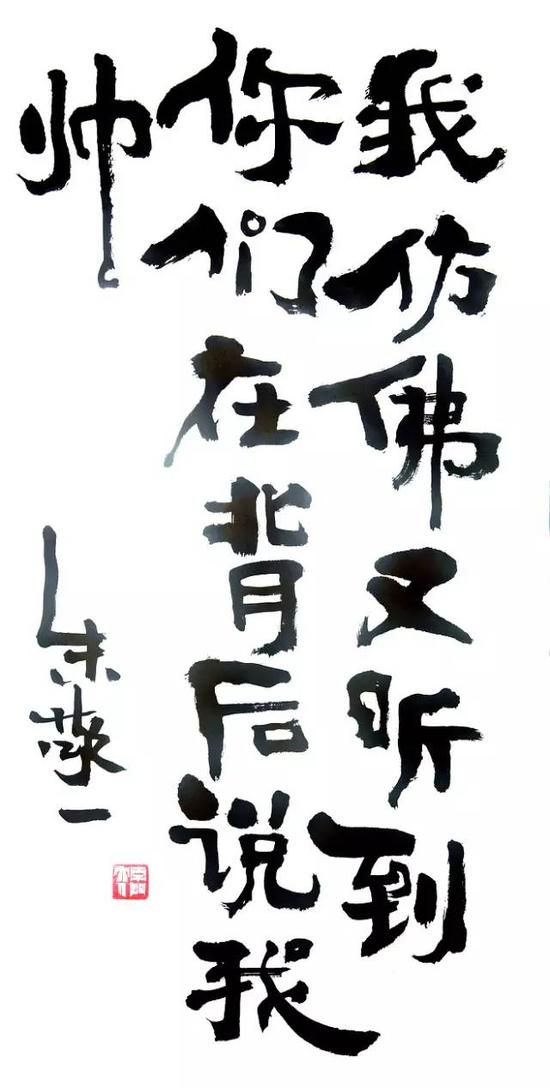 我仿佛又听到
你们在背后说我
帅
朱敬一